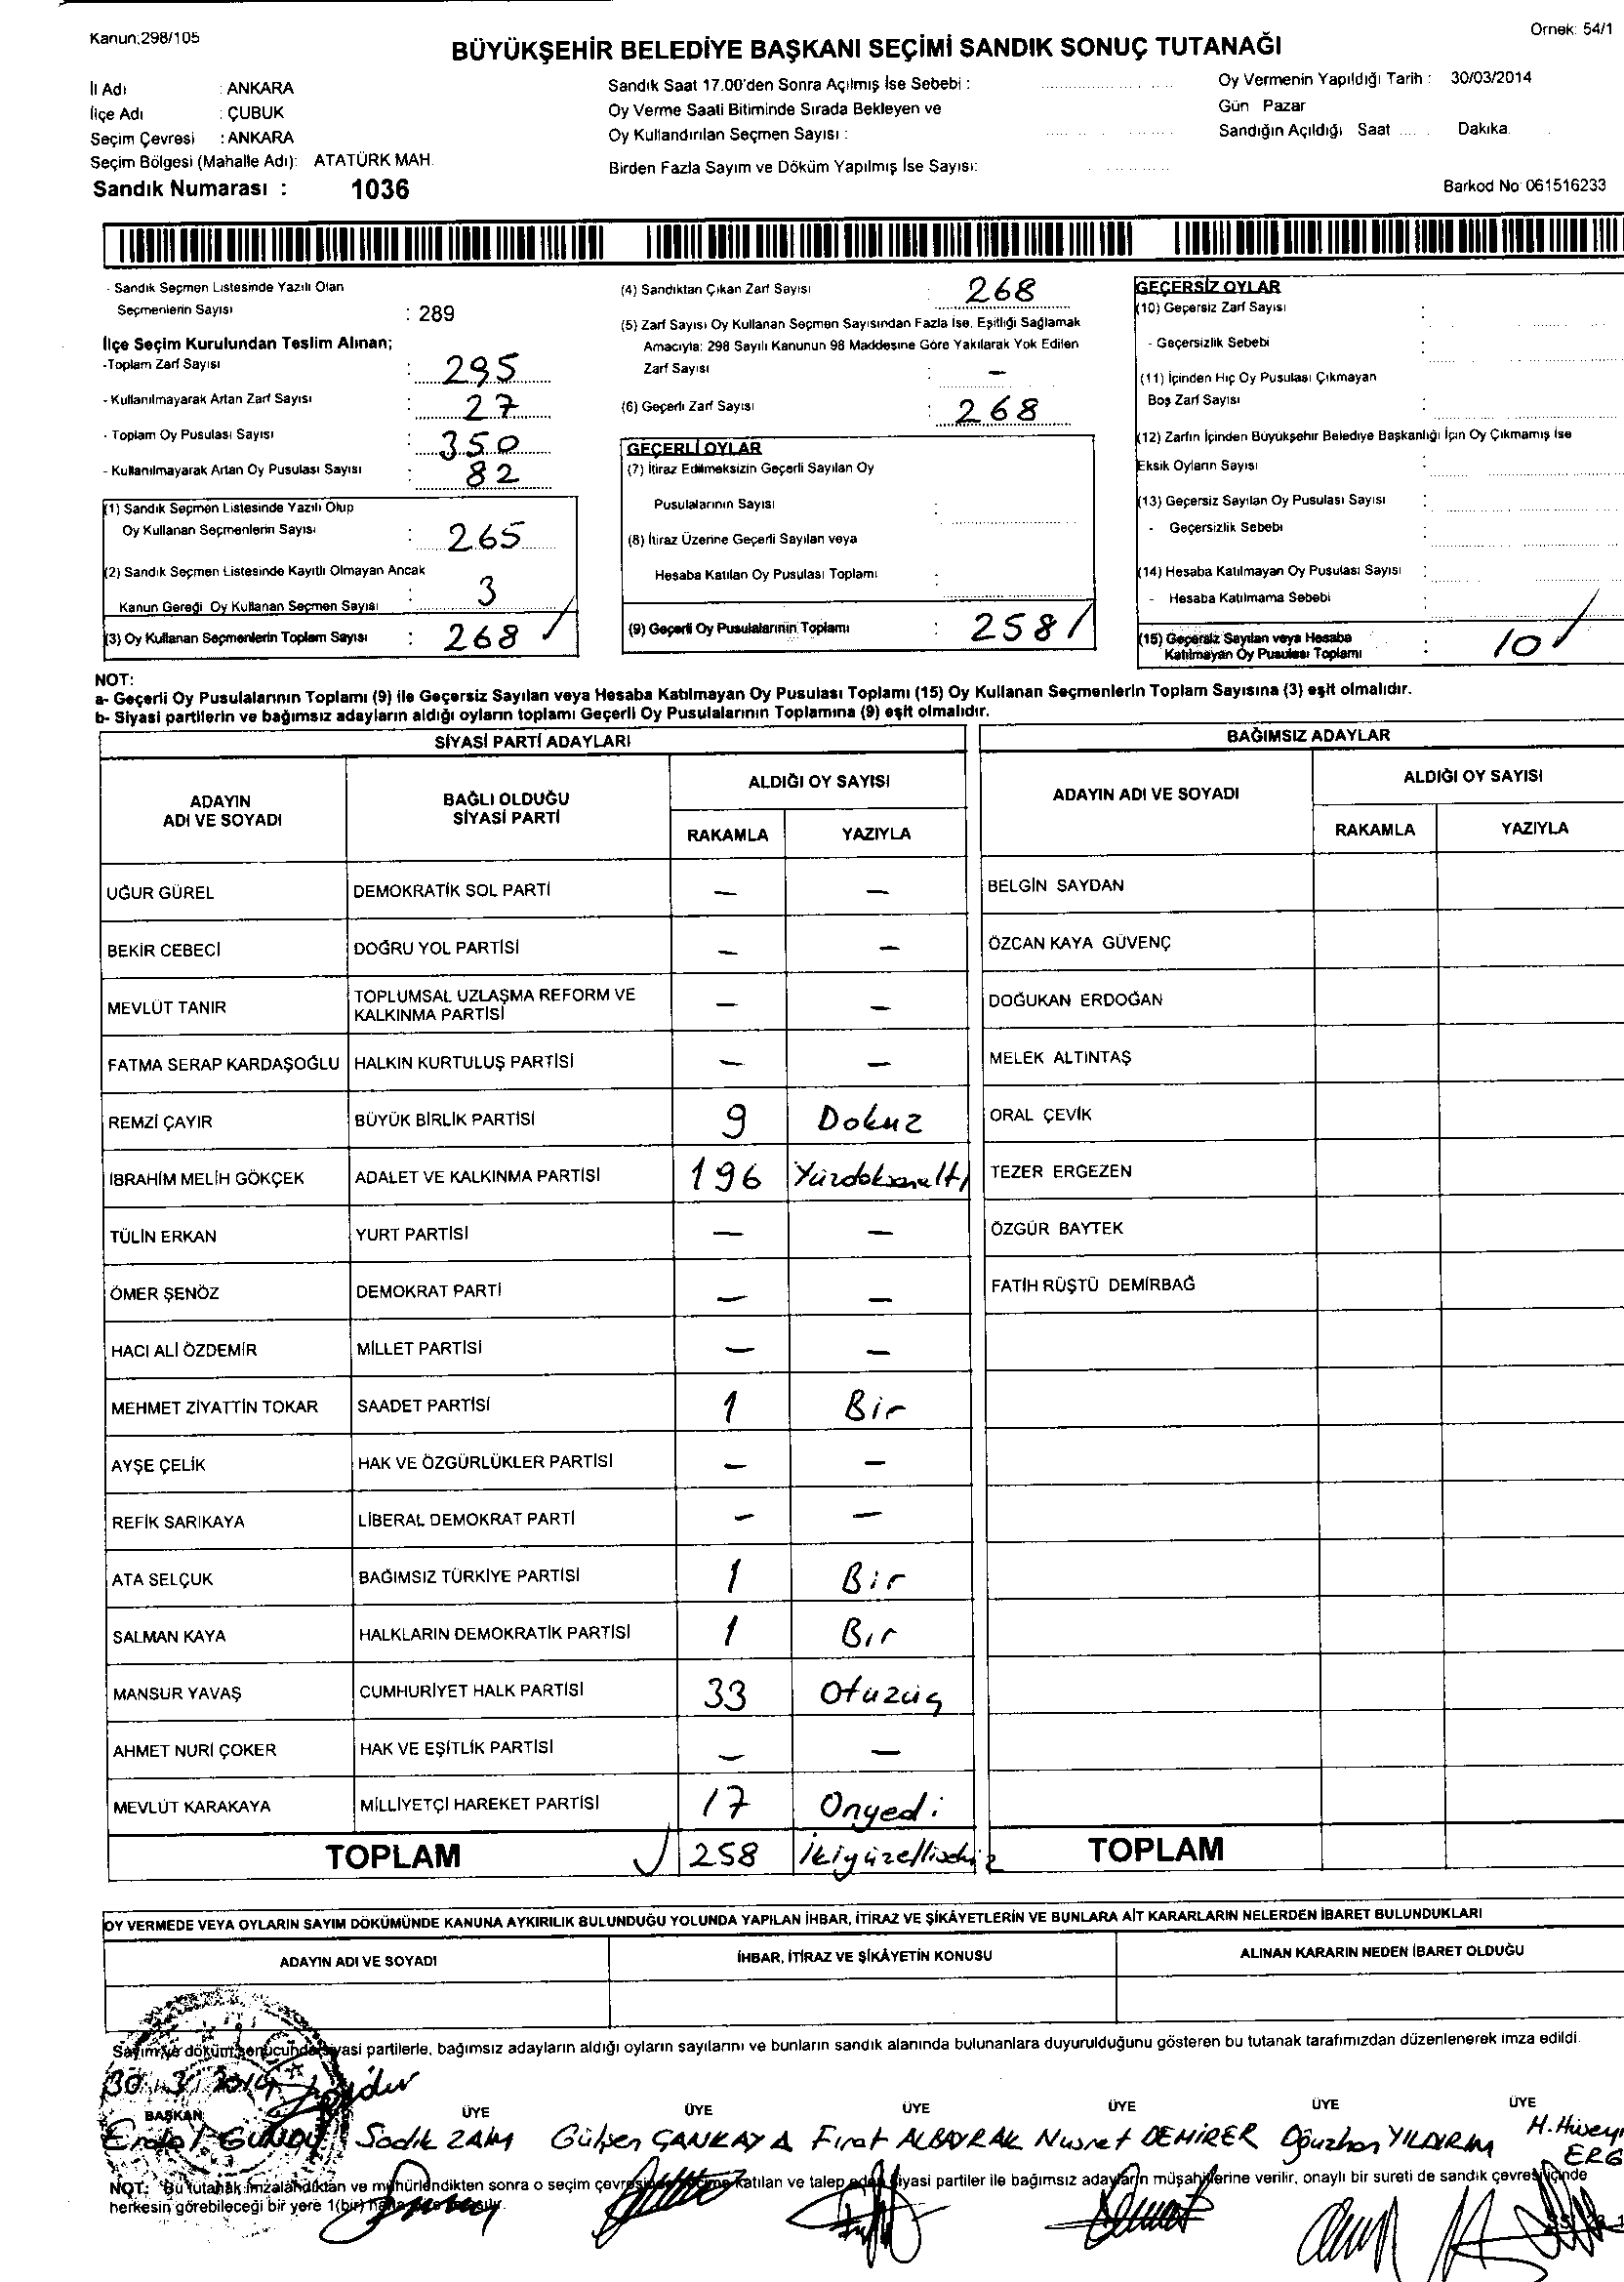 Kanun;298/105
Ornek: 54/1
BÜYÜKŞEHİR BELEDİYE BAŞKANI SEÇİMİ SANDIK SONUÇ TUTANAĞI
İl Adı : ANKARA
İlçe Adı : ÇUBUK
Seçim Çevresi : ANKARA
Seçim Bölgesi (Mahalle Adı): ATATÜRK MAH.
Sandık Numarası : 1036
Sandık Saat 17.00'den Sonra Açılmış İse Sebebi :
Oy Verme Saati Bitiminde Sırada Bekleyen ve
Oy Kullandırılan Seçmen Sayısı :
Birden Fazla Sayım ve Döküm Yapılmış İse Sayısı:
Oy Vermenin Yapıldığı Tarih : 30/03/2014
Gün Pazar
Sandığın Açıldığı Saat .... . Dakika.
Barkod No: 061516233
- Sandık Seçmen Listesinde Yazılı Olan
Seçmenlerin Sayısı : 289
İlçe Seçim Kurulundan Teslim Alınan;
-Toplam Zarf Sayısı : 295
- Kullanılmayarak Artan Zarf Sayısı : 27
- Toplam Oy Pusulası Sayısı : 350
- Kullanılmayarak Artan Oy Pusulası Sayısı : 82
(1) Sandık Seçmen Listesinde Yazılı Olup
Oy Kullanan Seçmenlerin Sayısı : 265
(2) Sandık Seçmen Listesinde Kayıtlı Olmayan Ancak
Kanun Gereği Oy Kullanan Seçmen Sayısı : 3
(3) Oy Kullanan Seçmenlerin Toplam Sayısı : 268
(4) Sandıktan Çıkan Zarf Sayısı : 268
(5) Zarf Sayısı Oy Kullanan Seçmen Sayısından Fazla İse, Eşitliği Sağlamak
Amacıyla: 298 Sayılı Kanunun 98 Maddesine Göre Yakılarak Yok Edilen
Zarf Sayısı : –
(6) Geçerli Zarf Sayısı : 268
GEÇERLİ OYLAR
(7) İtiraz Edilmeksizin Geçerli Sayılan Oy
Pusulalarının Sayısı :
(8) İtiraz Üzerine Geçerli Sayılan veya
Hesaba Katılan Oy Pusulası Toplamı :
(9) Geçerli Oy Pusulalarının Toplamı : 258
GEÇERSİZ OYLAR
(10) Geçersiz Zarf Sayısı :
- Geçersizlik Sebebi :
(11) İçinden Hiç Oy Pusulası Çıkmayan
Boş Zarf Sayısı :
(12) Zarfın İçinden Büyükşehir Belediye Başkanlığı İçin Oy Çıkmamış İse
Eksik Oyların Sayısı :
(13) Geçersiz Sayılan Oy Pusulası Sayısı :
- Geçersizlik Sebebi :
(14) Hesaba Katılmayan Oy Pusulası Sayısı :
- Hesaba Katılmama Sebebi :
(15) Geçersiz Sayılan veya Hesaba
Katılmayan Oy Pusulası Toplamı : 10
NOT:
a- Geçerli Oy Pusulalarının Toplamı (9) ile Geçersiz Sayılan veya Hesaba Katılmayan Oy Pusulası Toplamı (15) Oy Kullanan Seçmenlerin Toplam Sayısına (3) eşit olmalıdır.
b- Siyasi partilerin ve bağımsız adayların aldığı oyların toplamı Geçerli Oy Pusulalarının Toplamına (9) eşit olmalıdır.
SİYASİ PARTİ ADAYLARI
ADAYIN ADI VE SOYADI
BAĞLI OLDUĞU SİYASİ PARTİ
ALDIĞI OY SAYISI
RAKAMLA YAZIYLA
UĞUR GÜREL DEMOKRATİK SOL PARTİ – –
BEKİR CEBECİ DOĞRU YOL PARTİSİ – –
MEVLÜT TANIR TOPLUMSAL UZLAŞMA REFORM VE KALKINMA PARTİSİ – –
FATMA SERAP KARDAŞOĞLU HALKIN KURTULUŞ PARTİSİ – –
REMZİ ÇAYIR BÜYÜK BİRLİK PARTİSİ 9 Dokuz
İBRAHİM MELİH GÖKÇEK ADALET VE KALKINMA PARTİSİ 196 Yüzdoksanaltı
TÜLİN ERKAN YURT PARTİSİ – –
ÖMER ŞENÖZ DEMOKRAT PARTİ – –
HACI ALİ ÖZDEMİR MİLLET PARTİSİ – –
MEHMET ZİYATTİN TOKAR SAADET PARTİSİ 1 Bir
AYŞE ÇELİK HAK VE ÖZGÜRLÜKLER PARTİSİ – –
REFİK SARIKAYA LİBERAL DEMOKRAT PARTİ – –
ATA SELÇUK BAĞIMSIZ TÜRKİYE PARTİSİ 1 Bir
SALMAN KAYA HALKLARIN DEMOKRATİK PARTİSİ 1 Bir
MANSUR YAVAŞ CUMHURİYET HALK PARTİSİ 33 Otuzüç
AHMET NURİ ÇOKER HAK VE EŞİTLİK PARTİSİ – –
MEVLÜT KARAKAYA MİLLİYETÇİ HAREKET PARTİSİ 17 Onyedi
TOPLAM 258 İkiyüzellisekiz
BAĞIMSIZ ADAYLAR
ADAYIN ADI VE SOYADI
ALDIĞI OY SAYISI
RAKAMLA YAZIYLA
BELGİN SAYDAN
ÖZCAN KAYA GÜVENÇ
DOĞUKAN ERDOĞAN
MELEK ALTINTAŞ
ORAL ÇEVİK
TEZER ERGEZEN
ÖZGÜR BAYTEK
FATİH RÜŞTÜ DEMİRBAĞ
TOPLAM
OY VERMEDE VEYA OYLARIN SAYIM DÖKÜMÜNDE KANUNA AYKIRILIK BULUNDUĞU YOLUNDA YAPILAN İHBAR, İTİRAZ VE ŞİKÂYETLERİN VE BUNLARA AİT KARARLARIN NELERDEN İBARET BULUNDUKLARI
ADAYIN ADI VE SOYADI İHBAR, İTİRAZ VE ŞİKÂYETİN KONUSU ALINAN KARARIN NEDEN İBARET OLDUĞU
Sayım ve döküm sonucunda siyasi partilerle, bağımsız adayların aldığı oyların sayılarını ve bunların sandık alanında bulunanlara duyurulduğunu gösteren bu tutanak tarafımızdan düzenlenerek imza edildi.
30.3.2014
BAŞKAN ÜYE ÜYE ÜYE ÜYE ÜYE ÜYE
Erdal GÜNDÜ Sadık ZAİM Gülşen ÇANKAYA Fırat ALBAYRAK Nusret DEMİRER Oğuzhan YILDIRIM H.Hüseyi
ERG
NOT: Bu tutanak imzalandıktan ve mühürlendikten sonra o seçim çevresinde seçime katılan ve talep eden siyasi partiler ile bağımsız adayların müşahitlerine verilir, onaylı bir sureti de sandık çevresi içinde
herkesin görebileceği bir yere 1(bir) hafta